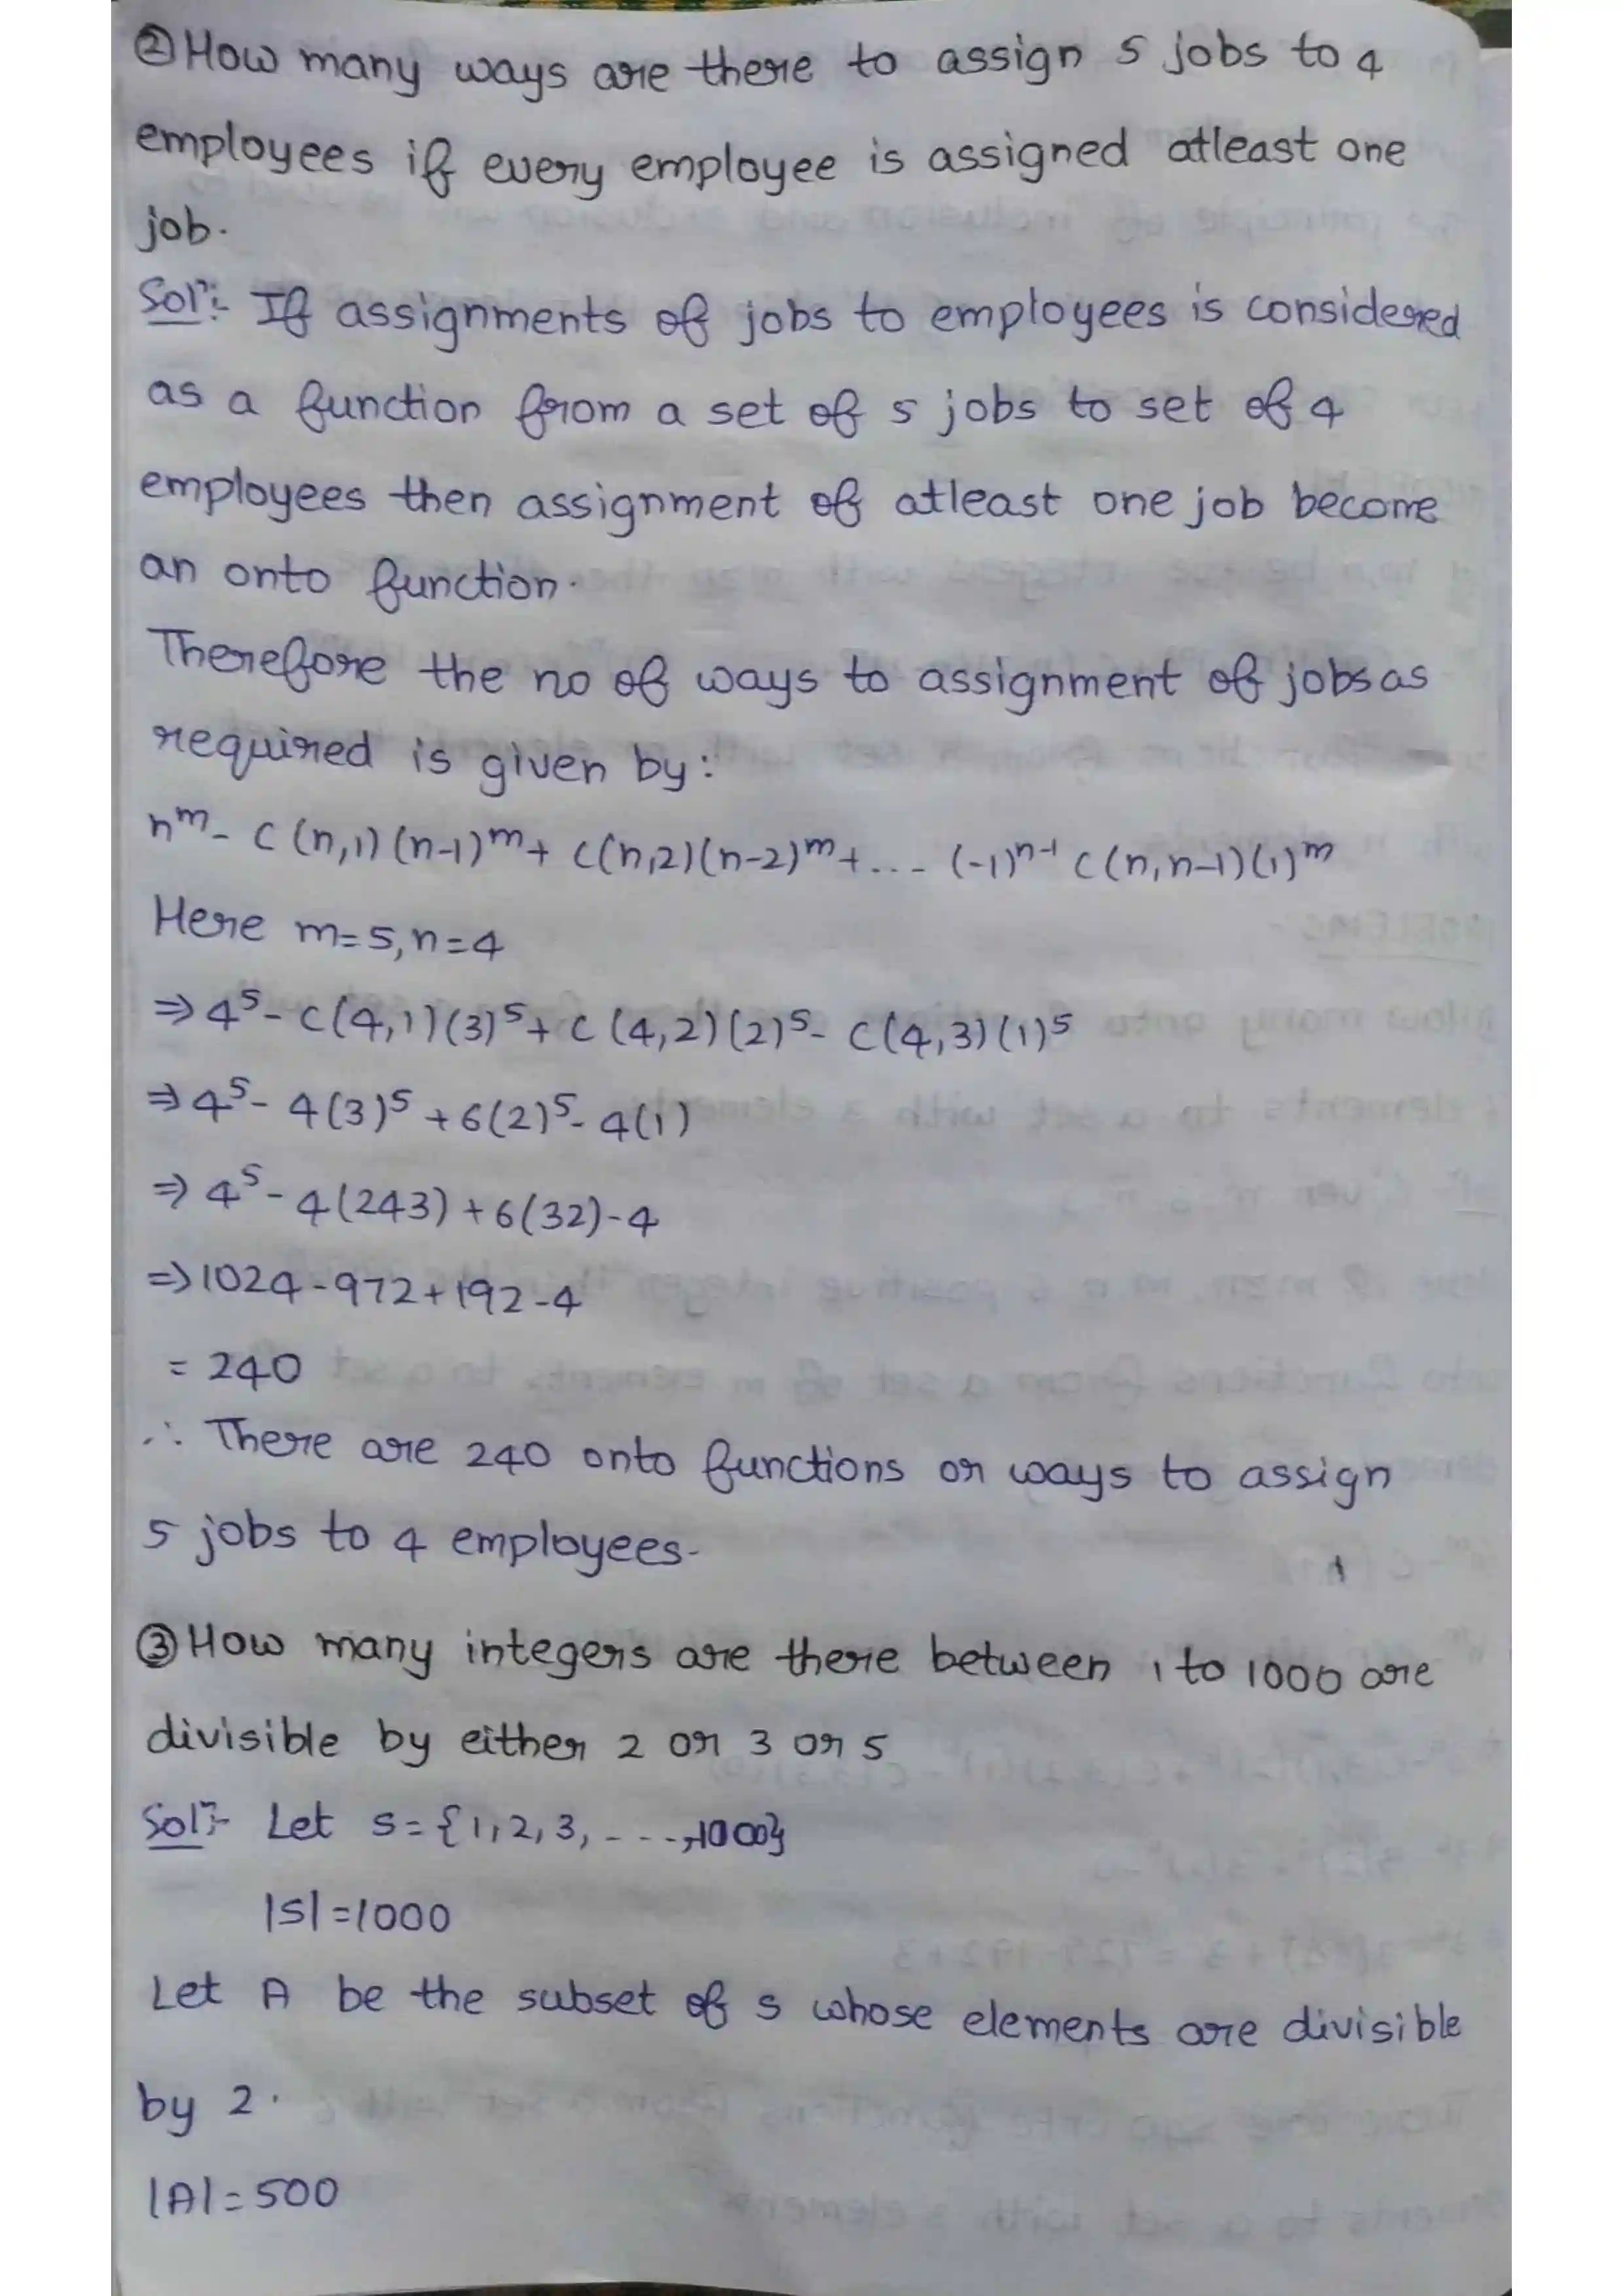 ② How many ways are there to assign 5 jobs to 4
employees if every employee is assigned atleast one
job.
Solⁿ:- If assignments of jobs to employees is considered
as a function from a set of 5 jobs to set of 4
employees then assignment of atleast one job become
an onto function.
Therefore the no of ways to assignment of jobs as
required is given by:
n^m - C(n,1)(n-1)^m + C(n,2)(n-2)^m + ... (-1)^n-1 C(n,n-1)(1)^m
Here m=5, n=4
⇒ 4^5 - C(4,1)(3)^5 + C(4,2)(2)^5 - C(4,3)(1)^5
⇒ 4^5 - 4(3)^5 + 6(2)^5 - 4(1)
⇒ 4^5 - 4(243) + 6(32) - 4
⇒ 1024 - 972 + 192 - 4
= 240
∴ There are 240 onto functions or ways to assign
5 jobs to 4 employees.
③ How many integers are there between 1 to 1000 are
divisible by either 2 or 3 or 5
Solⁿ:- Let S = {1, 2, 3, - - -, 1000}
|S| = 1000
Let A be the subset of S whose elements are divisible
by 2.
|A| = 500